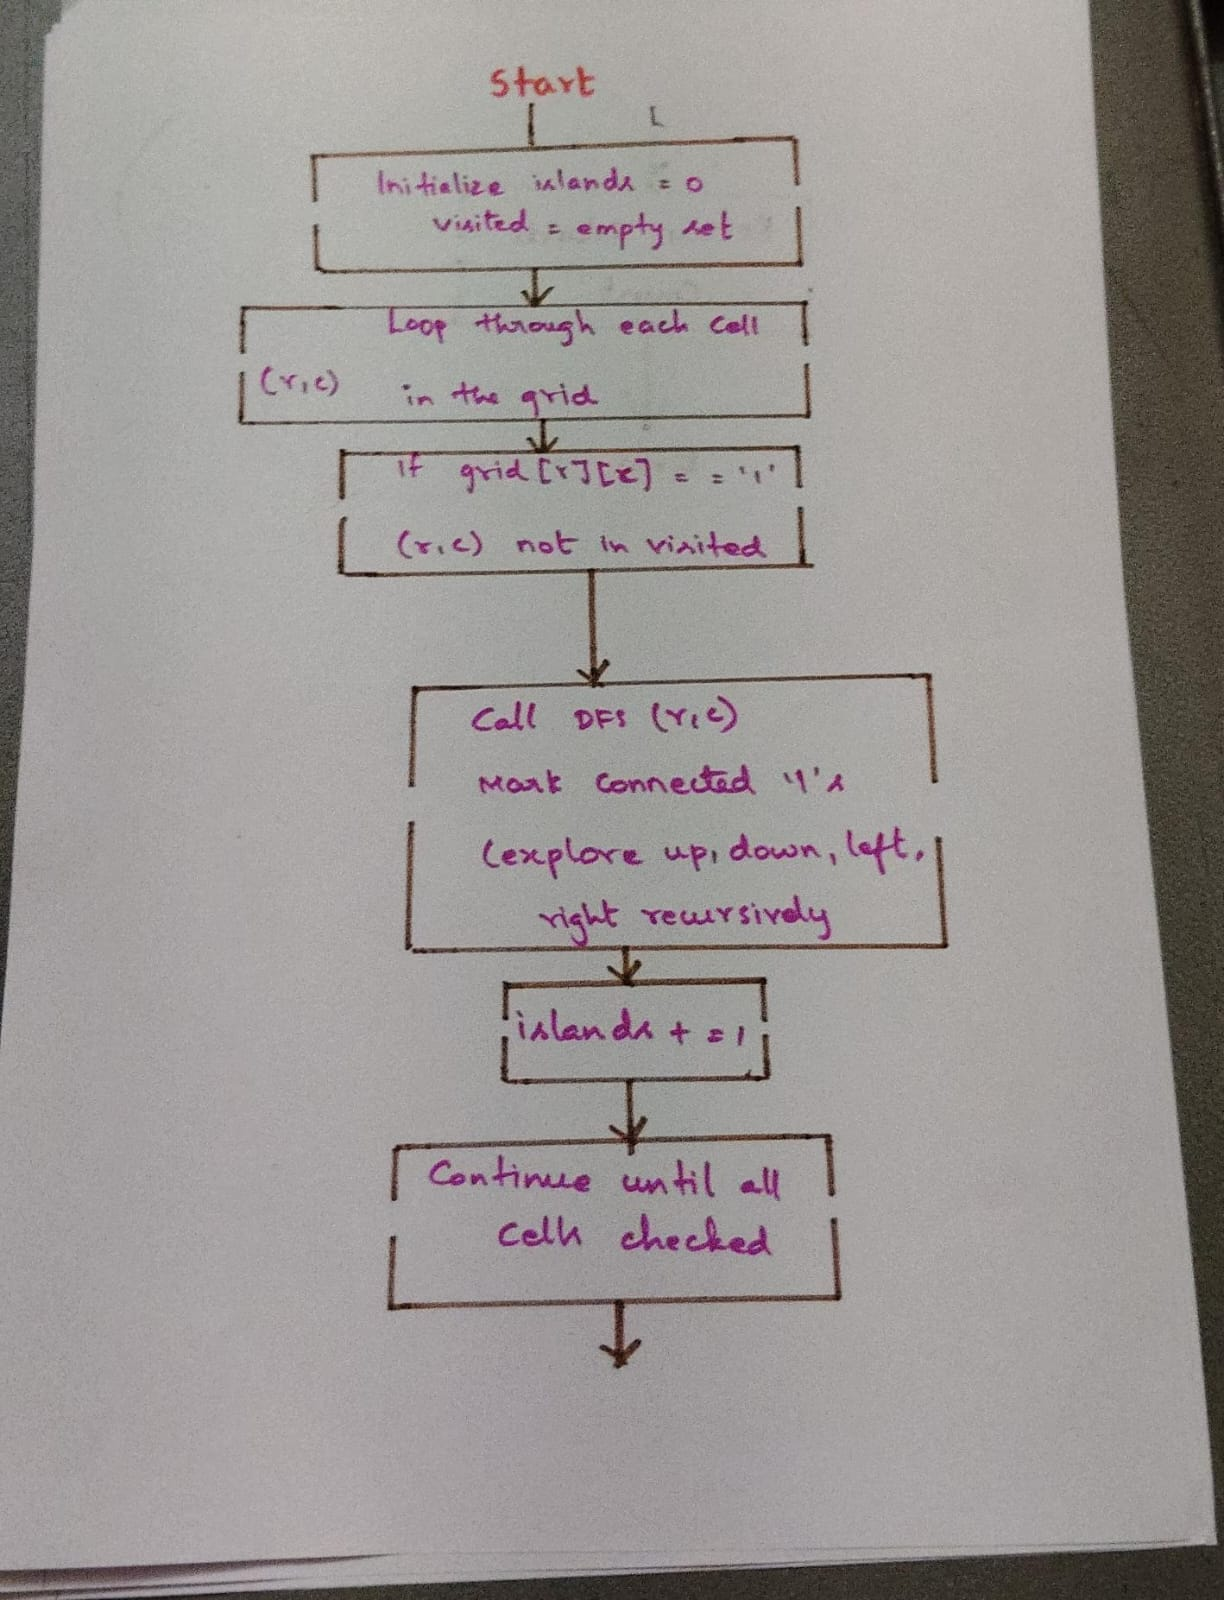 Start
Initialize islands = 0
visited = empty set
Loop through each cell
(r,c) in the grid
if grid [r][c] = = '1'
(r,c) not in visited
Call DFS (r,c)
Mark connected '1's
(explore up, down, left,
right recursively
islands + = 1
Continue until all
cells checked